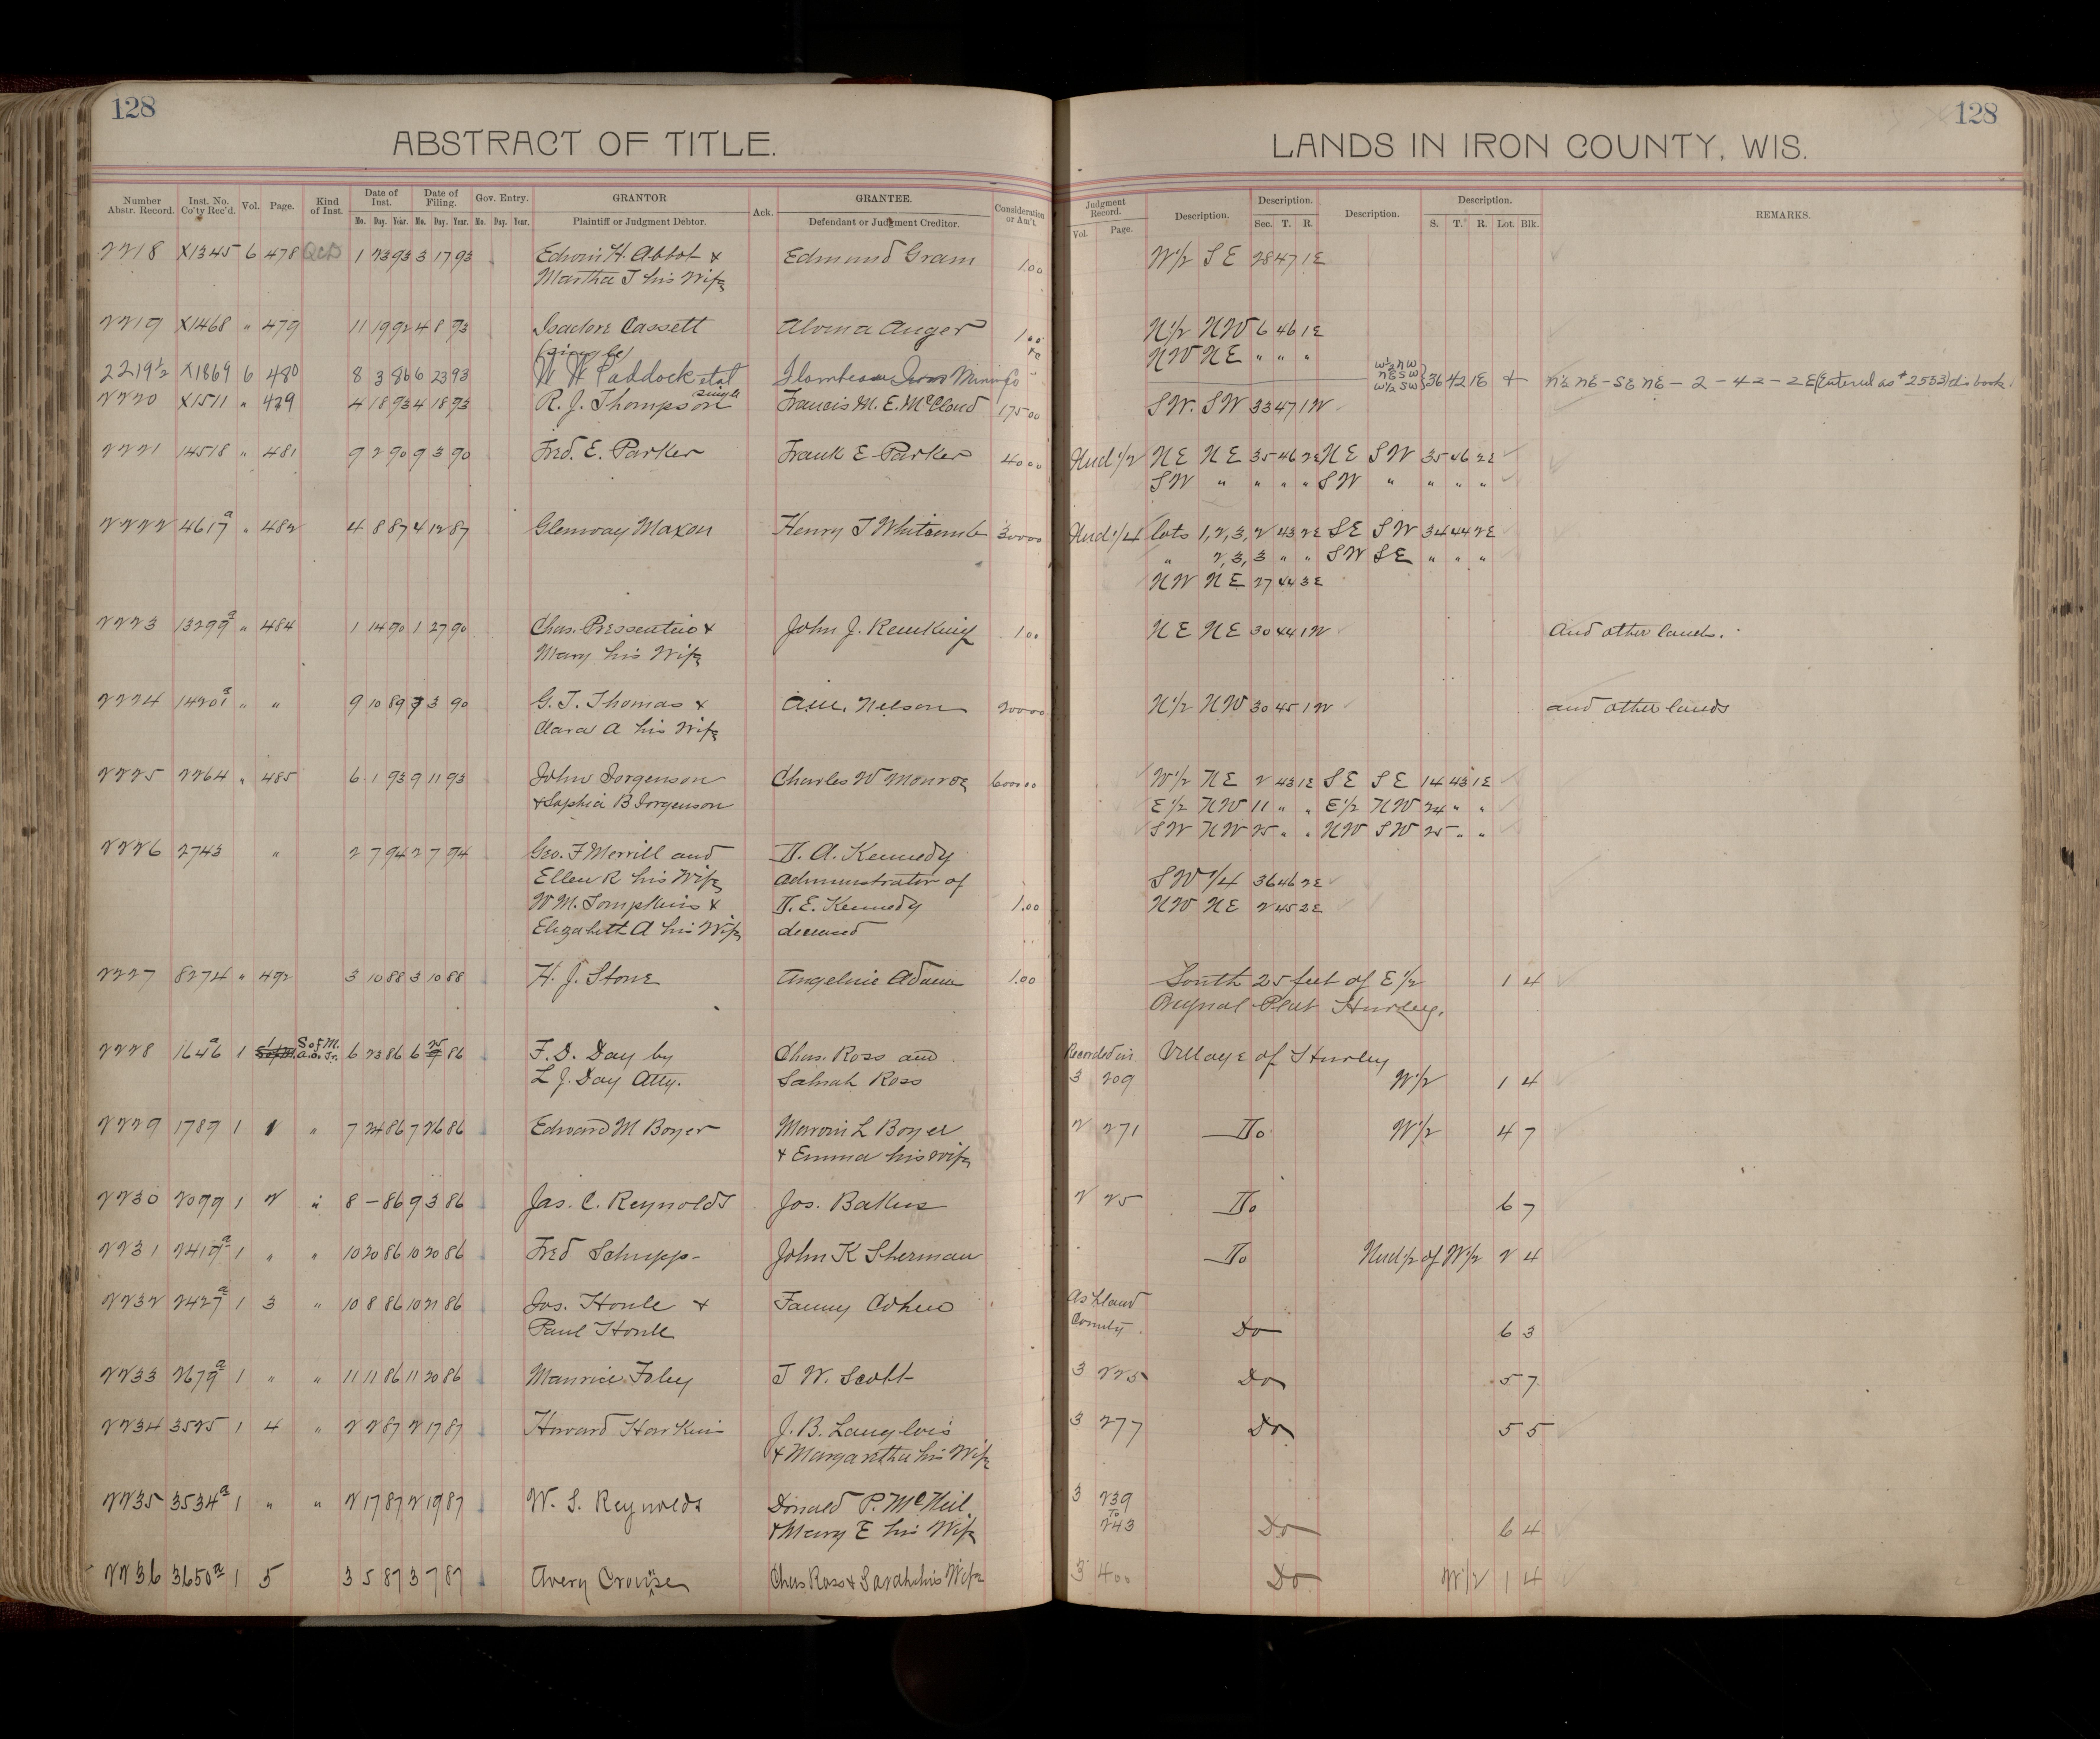 128
ABSTRACT OF TITLE.
Number Abstr. Record. Inst. No. Co'ty Rec'd. Vol. Page. Kind of Inst. Date of Inst. Date of Filing. Gov. Entry. GRANTOR Ack. GRANTEE. Consideration or Am't.
Mo. Day. Year. Mo. Day. Year. Mo. Day. Year. Plaintiff or Judgment Debtor. Defendant or Judgment Creditor.
2218 X1345 6 478 QCD 1 23 93 3 17 93 Edwin H. Abbot & Edmund Gram 1.00
Martha T his Wife
2219 X1468 " 479 11 19 92 4 8 93 Isadore Cassett Alvina Auger 1.00
(single)
2219½ X1869 6 480 8 3 86 6 23 93 W W Paddock etal Iron Mining Co
2220 X1511 " 429 4 18 93 4 18 93 R. J. Thompson single Francis M. E. McCloud 175 00
2221 14518 " 481 9 2 90 9 3 90 Fred. E. Parker Frank E Parker 40 00
2222 4617a " 482 4 8 87 4 12 87 Glenway Maxon Henry T Whitcomb 300 00
2223 13299a " 484 1 14 90 1 27 90 Chas. Pressentin & John J. Kemking 1.00
Mary his Wife
2224 14201a " " 9 10 89 7 3 90 G. T. Thomas & Nelson 200 00
Clara A his Wife
2225 2264 " 485 6 1 93 9 11 93 John Jorgenson Charles W Monroe 6000 00
& Sophia B Jorgenson
2226 2743 " 2 7 94 2 7 94 Geo. F Merrill and D. A. Kennedy
Ellen R his Wife administrator of
W M. Tompkins & D. E. Kennedy 1.00
Elizabeth A his Wife deceased
2227 8274 " 492 3 10 88 3 10 88 H. J. Stone Angelnie Adams 1.00
2228 1646a 1 1 S of M. a.o. Jr. 6 23 86 6 25 86 F. D. Day by Chas. Ross and
L J. Day Atty. Sahrah Ross
2229 1789 1 1 " 7 24 86 7 26 86 Edward M Boyer L Boyer
& Emma his wife
2230 2099 1 2 " 8 - 86 9 3 86 Jas. C. Reynolds Jos. Bakus
2231 2419a 1 " " 10 20 86 10 20 86 Fred Schupp John K Sherman
2232 2427a 1 3 " 10 8 86 10 21 86 Jos. Houle & Fanny Cohen
Paul Houle
2233 2679a 1 " " 11 11 86 11 20 86 Maurice Foley J W. Scott
2234 3525 1 4 " 2 2 87 2 17 87 Howard Hawkins J. B. Langlois
& Margaretha his Wife
2235 3534a 1 " " 2 17 87 2 19 87 W. S. Reynolds Donald P. McNeil
& Mary E his Wife
2236 3650a 1 5 3 5 87 3 7 87 Avery Crouse Chas Ross & Sarah his Wife
128
LANDS IN IRON COUNTY, WIS.
Judgment Record. Description. Description. Description. Description. REMARKS.
Vol. Page. Sec. T. R. S. T. R. Lot. Blk.
W½ SE 28 47 1E
N½ NW 6 46 1E
NW NE " " "
W½ NW
NE SW
W½ SW } 36 42 1E + N½ NE - SE NE - 2 - 42 - 2E (Entered as #2553) this book
SW. SW 33 47 1W
Und ½ NE NE 35 46 2E NE SW 35 46 2E
SW " " " " SW " " " "
Und ¼ lots 1,2,3, 2 43 2E SE SW 34 44 2E
" 2,3, 3 " " SW SE " " "
NW NE 27 44 3E
NE NE 30 44 1W And other lands.
N½ NW 30 45 1W and other lands
W½ NE 2 43 1E SE SE 14 43 1E
E½ NW 11 " " E½ NW 24 " "
SW NW 25 " " NW SW 25 " "
SW ¼ 36 46 2E
NW NE 2 45 2E
South 25 feet of E½ 1 4
Orignal Plat Hurley.
Recorded in Village of Hurley
3 209 W½ 1 4
2 271 Do W½ 4 7
2 25 Do 6 7
Do Und ½ of W½ 2 4
Ashland
County Do 6 3
3 225 Do 5 7
3 277 Do 5 5
3 239
To
243 Do 6 4
3 400 Do W½ 1 4